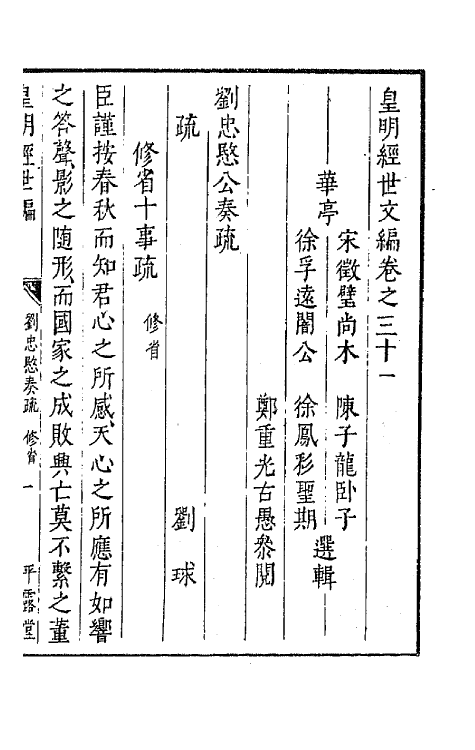 皇明經世文編卷之三十一
華亭
宋徵璧尚木
陳子龍臥子
徐孚遠闇公
徐鳳彩聖期
選輯
鄭重光古愚叅閱
劉忠愍公奏疏
疏
劉球
修省十事疏 修省
臣謹按春秋而知君心之所感天心之所應有如響
之答聲影之随形而國家之成敗興亡莫不繫之董
皇明經世編
劉忠愍奏疏 修省 一
平露堂